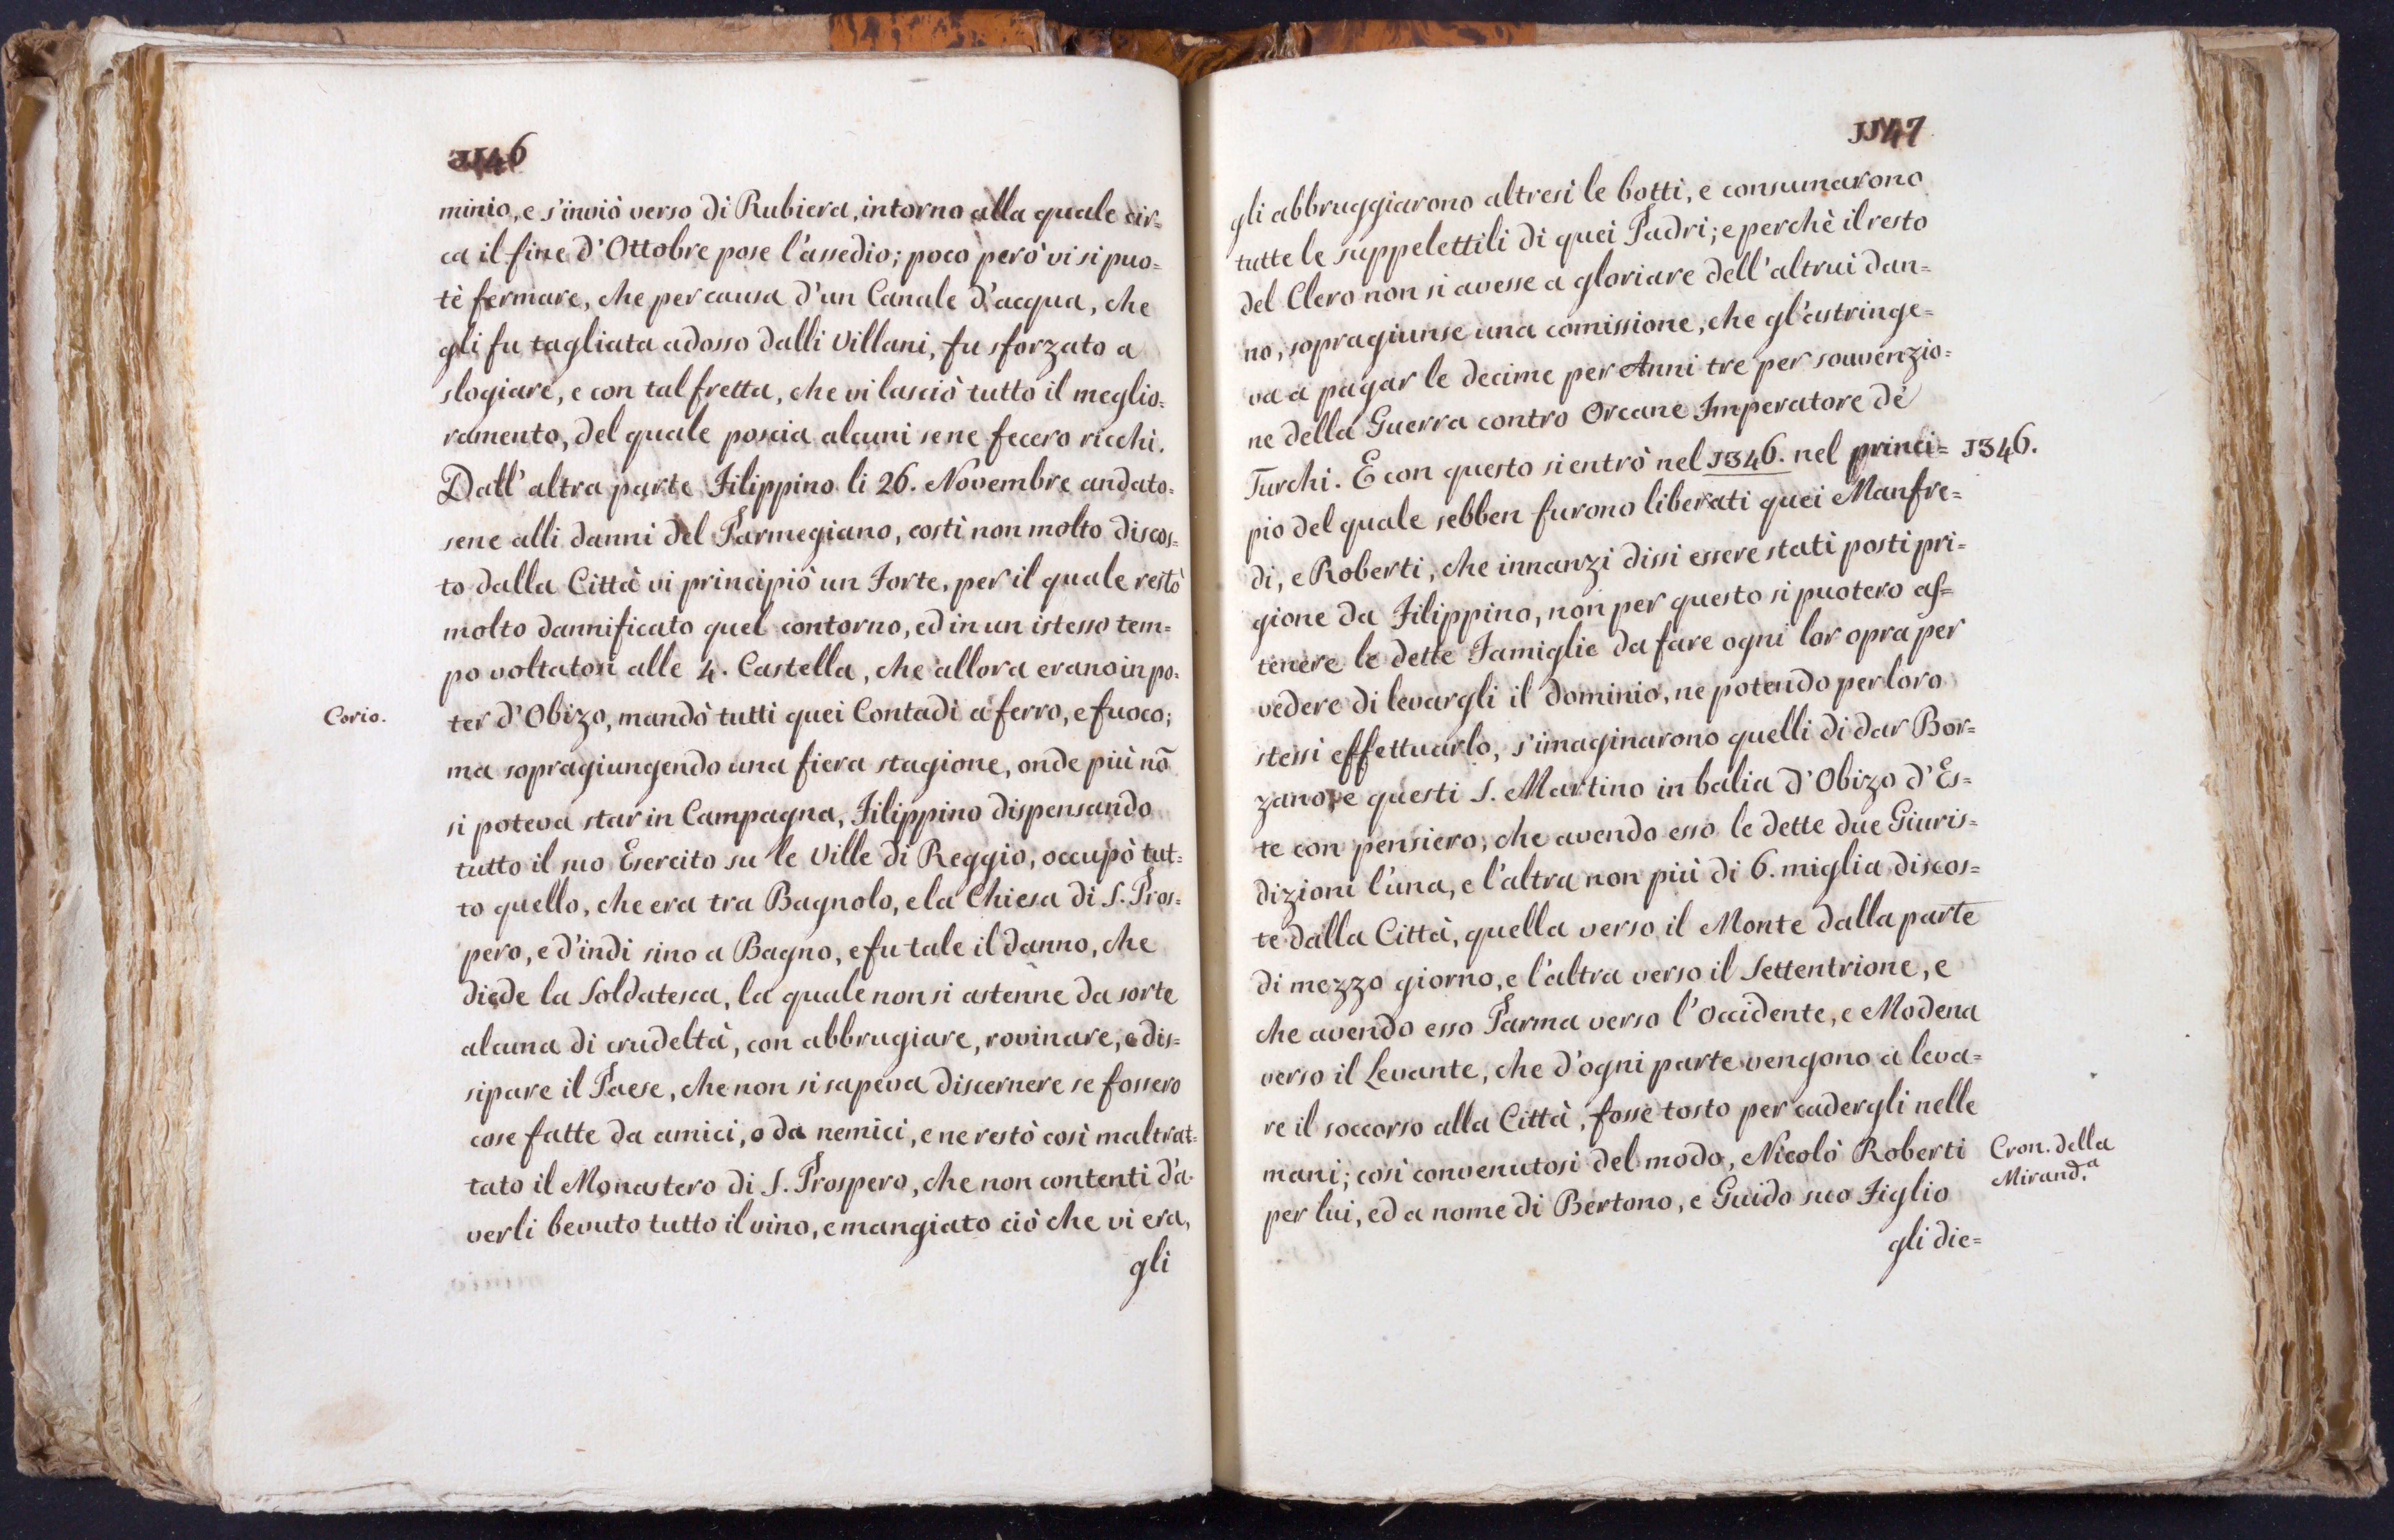 1146
minio, e s'inviò verso di Rubiera, intorno alla quale cir=
ca il fine d'Ottobre pose l'assedio; poco però vi si puo=
tè fermare, che per causa d'un Canale d'acqua, che
gli fu tagliata adosso dalli Villani, fu sforzato a
slogiare, e con tal fretta, che vi lasciò tutto il meglio=
ramento, del quale poscia alcuni se ne fecero ricchi.
Dall' altra parte Filippino li 26. Novembre andato=
sene alli danni del Parmegiano, costì non molto discos=
to dalla Città vi principiò un Forte, per il quale restò
molto dannificato quel contorno, ed in un istesso tem=
po voltatosi alle 4. Castella, che allora erano in po=
Corio.
ter d'Obizo, mandò tutti quei Contadi a ferro, e fuoco;
ma sopragiungendo una fiera stagione, onde più nõ
si poteva star in Campagna, Filippino dispensando
tutto il suo Esercito su le Ville di Reggio, occupò tut=
to quello, che era tra Bagnolo, e la Chiesa di S. Pros=
pero, e d'indi sino a Bagno, e fu tale il danno, che
diede la Soldatesca, la quale non si astenne da sorte
alcuna di crudeltà, con abbrugiare, rovinare, e dis=
sipare il Paese, che non si sapeva discernere se fossero
cose fatte da amici, o da nemici, e ne restò così maltrat=
tato il Monastero di S. Prospero, che non contenti d'a=
verli bevuto tutto il vino, e mangiato ciò che vi era,
gli
1147
gli abbruggiarono altresi le botti, e consumarono
tutte le suppelettili di quei Padri; e perchè il resto
del Clero non si avesse a gloriare dell'altrui dan=
no, sopragiunse una comissione, che gl'astringe=
va a pagar le decime per Anni tre per souvenzio=
ne della Guerra contro Orcane Imperatore de'
Turchi. E con questo si entrò nel 1346. nel princi=
1346.
pio del quale sebben furono liberati quei Manfre=
di, e Roberti, che innanzi dissi essere stati posti pri=
gione da Filippino, non per questo si puotero as=
tenere le dette Famiglie da fare ogni lor opra per
vedere di levargli il dominio, ne potendo per loro
stessi effettuarlo, s'imaginarono quelli di dar Bor=
zano, e questi S. Martino in balia d'Obizo d'Es=
te con pensiero, che avendo esso le dette due Giuris=
dizioni l'una, e l'altra non più di 6. miglia discos=
te dalla Città, quella verso il Monte dalla parte
di mezzo giorno, e l'altra verso il Settentrione, e
che avendo esso Parma verso l'Occidente, e Modena
verso il Levante, che d'ogni parte vengono a leva=
re il soccorso alla Città, fosse tosto per cadergli nelle
mani; così convenutosi del modo, Nicolò Roberti
Cron. della
Mirand.ª
per lui, ed a nome di Bertono, e Guido suo Figlio
gli die=